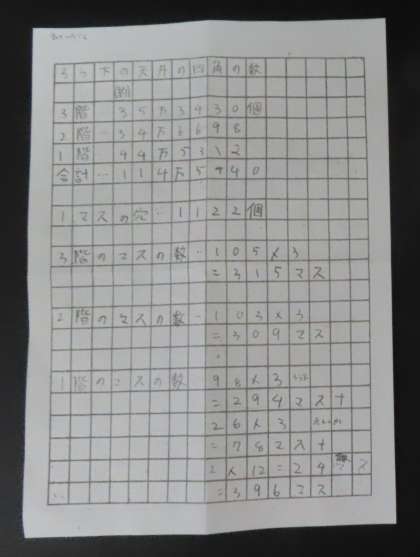 ろう下の天井の四角の数
3階…35万3430個
2階…34万6698
1階…44万5312
合計…114万5440
1マスの穴…1122個
3階のマスの数…105×3
=315マス
2階のマスの数…103×3
=309マス
1階のマスの数 98×3
=294マス+
26×3
=78マス+
2×12=24マス
=396マス